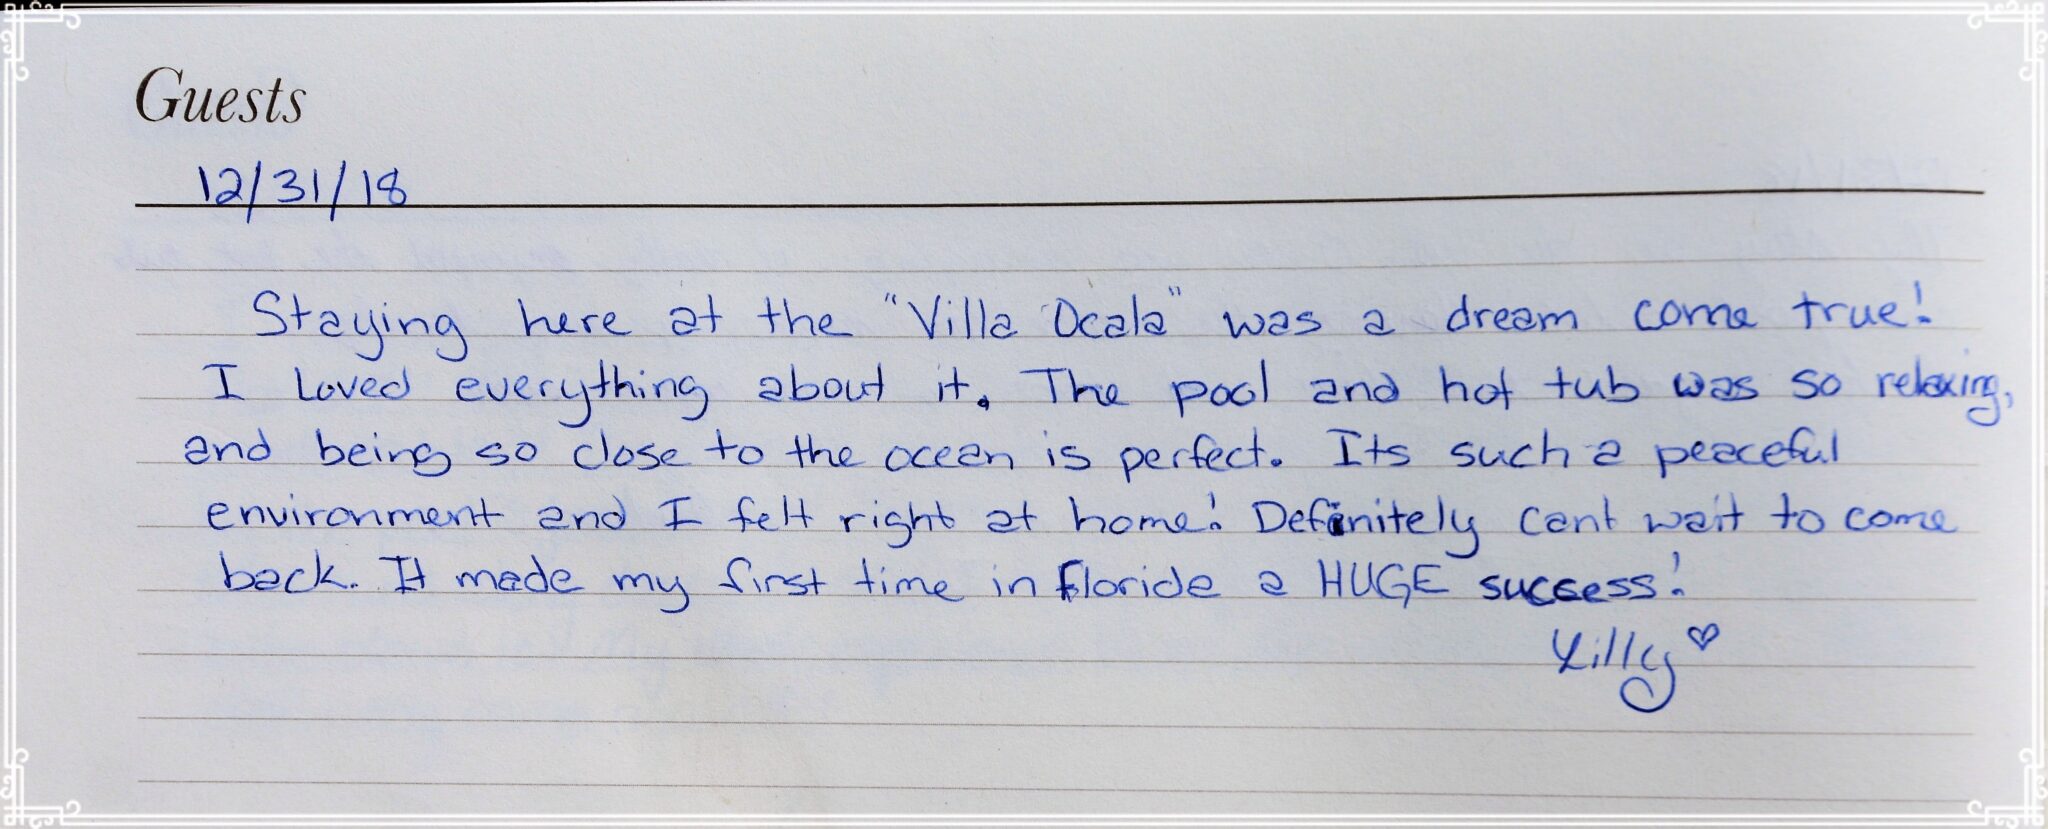 Guests
12/31/18
Staying here at the "Villa Ocala" was a dream come true!
I Loved everything about it. The pool and hot tub was so relaxing,
and being so close to the ocean is perfect. Its such a peaceful
environment and I felt right at home! Definitely cant wait to come
back. It made my first time in Florida a HUGE success!
Lilly ♡